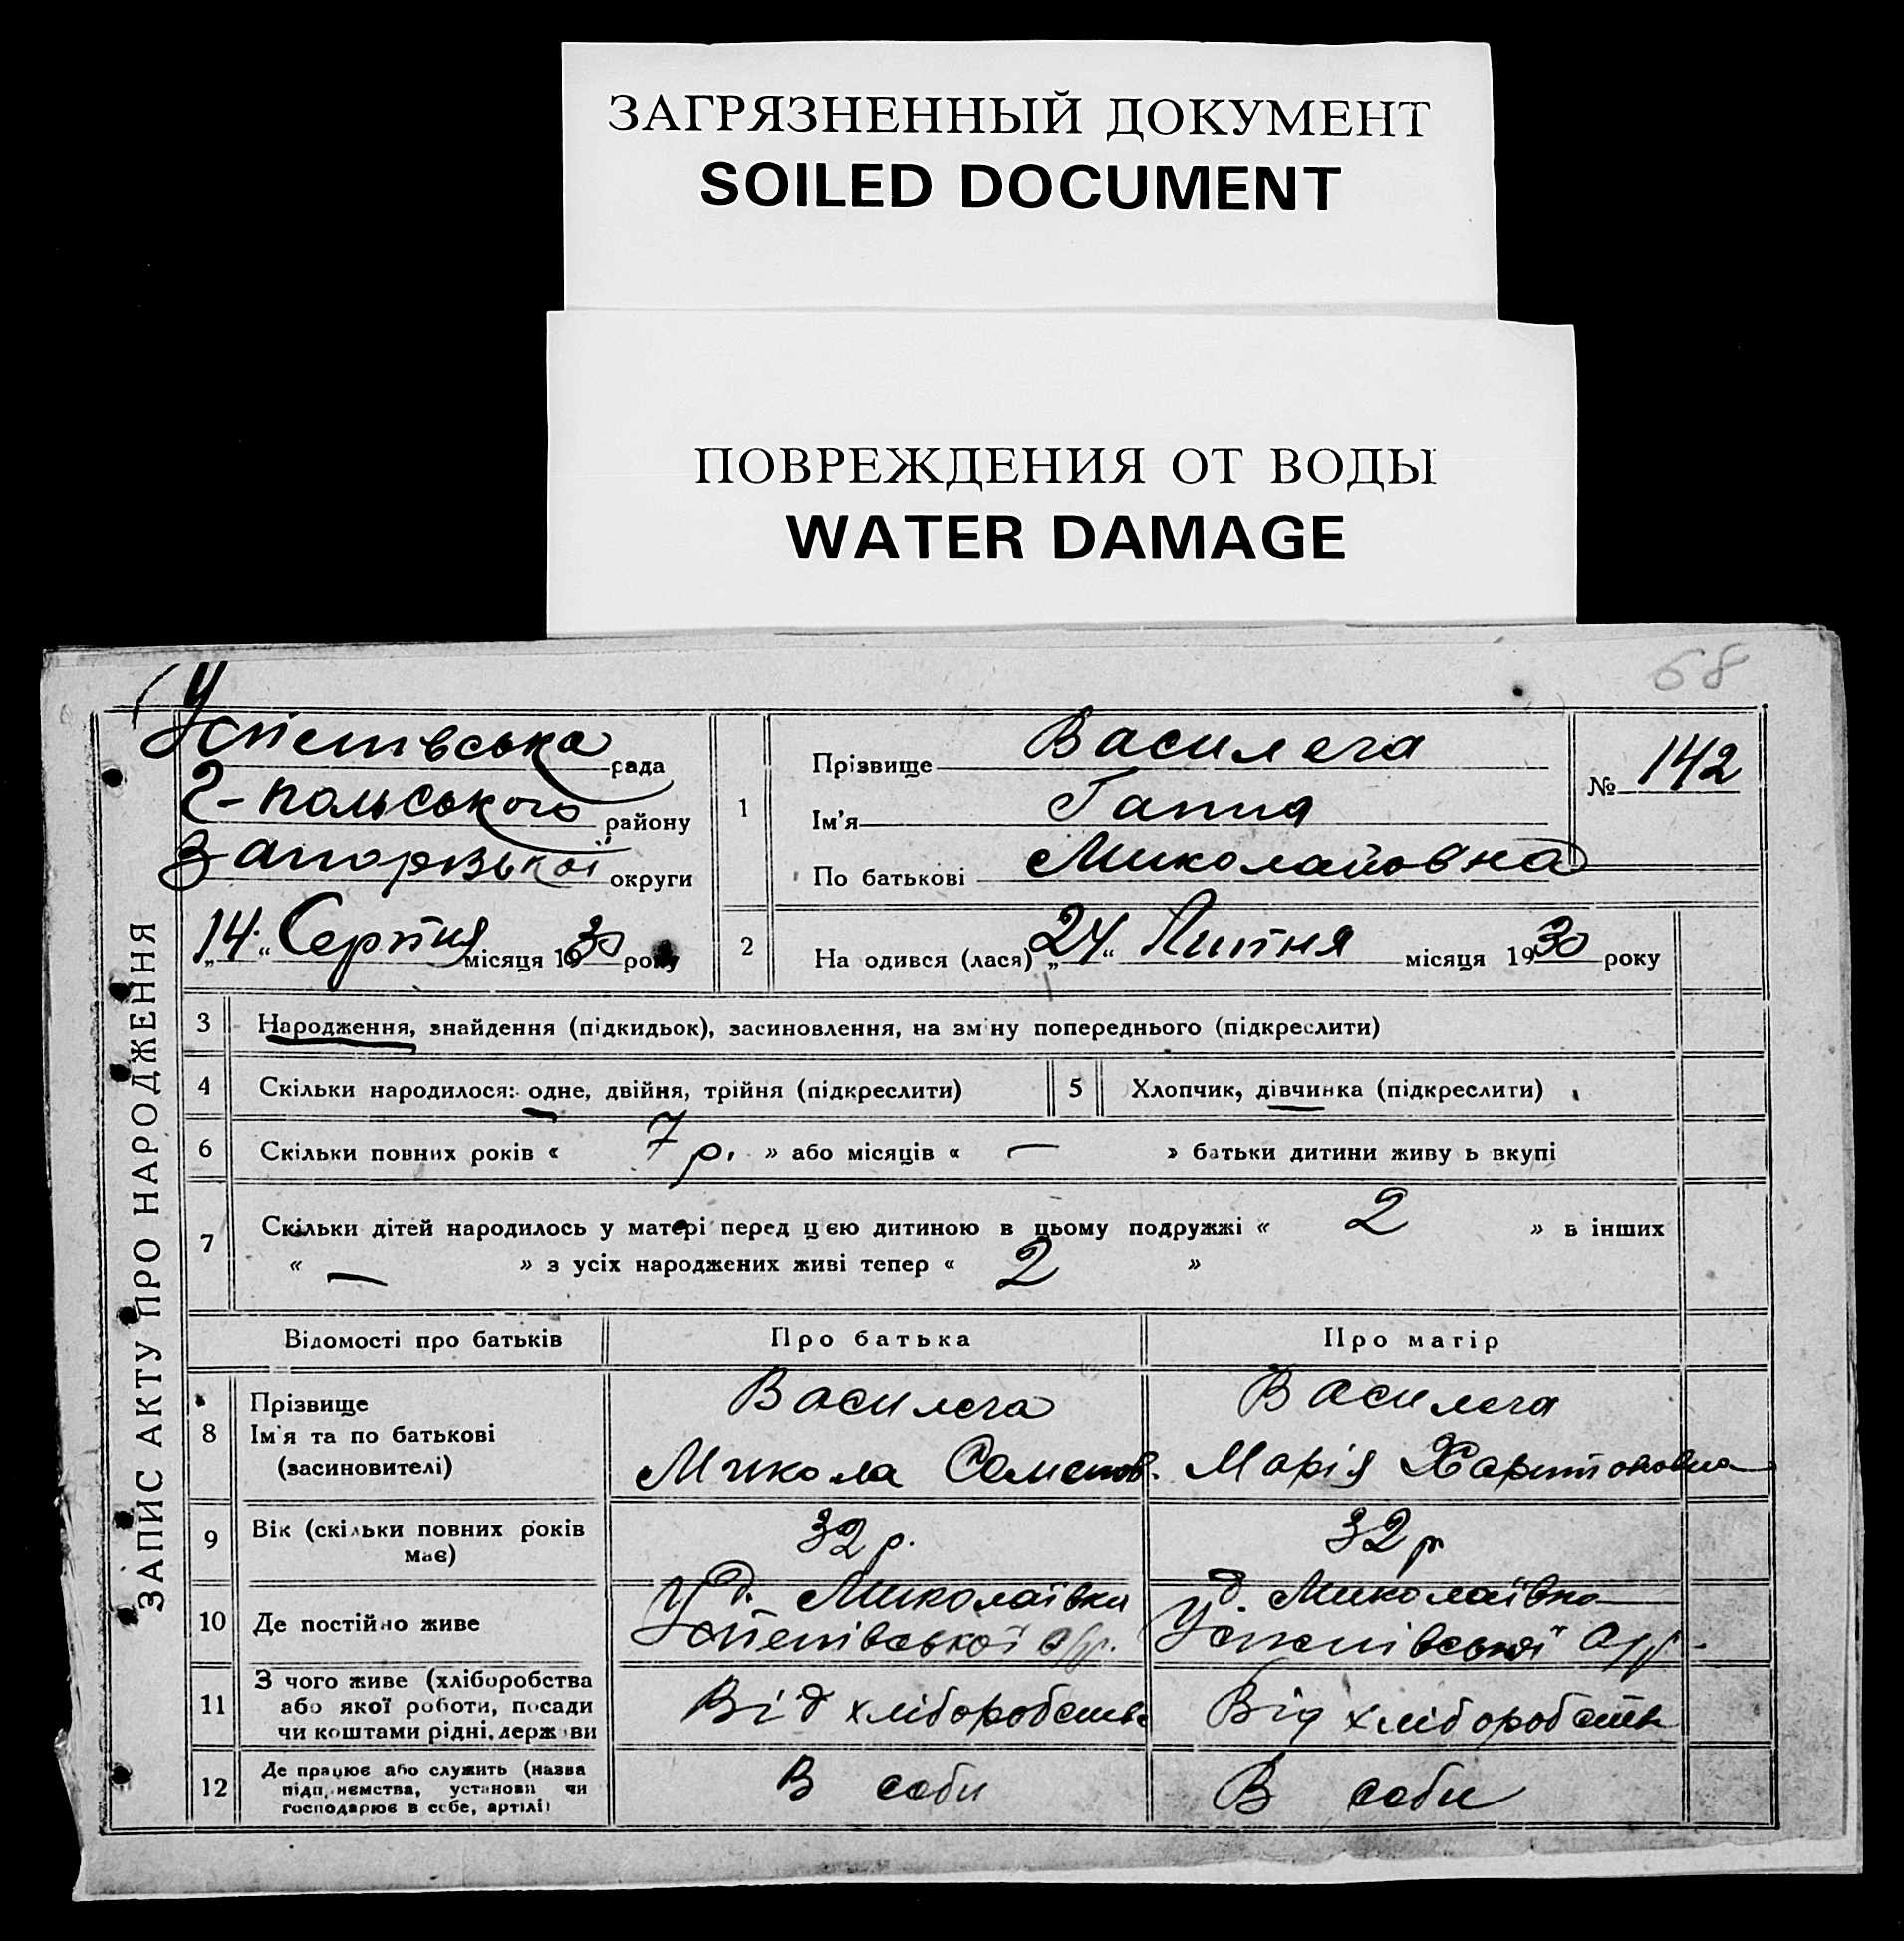 ЗАГРЯЗНЕННЫЙ ДОКУМЕНТ
SOILED DOCUMENT
ПОВРЕЖДЕНИЯ ОТ ВОДЫ
WATER DAMAGE
68
ЗАПИС АКТУ ПРО НАРОДЖЕННЯ
Успенівська рада
Г-Польського району
Запорізької округи
„14“ Серпня місяця 1930 року
1
Прізвище Василега
Ім'я Ганна
По батькові Миколайовна
№ 142
2 На одився (лася) „24“ Липня місяця 1930 року
3 Народження, знайдення (підкидьок), засиновлення, на зміну попереднього (підкреслити)
4 Скільки народилося: одне, двійня, трійня (підкреслити)
5 Хлопчик, дівчинка (підкреслити)
6 Скільки повних років « 7 р. » або місяців « — » батьки дитини живу ь вкупі
7 Скільки дітей народилось у матері перед цією дитиною в цьому подружжі « 2 » в інших
« — » з усіх народжених живі тепер « 2 »
Відомості про батьків Про батька Про матір
8 Прізвище
Ім'я та по батькові
(засиновителі)
Василега
Микола Семенов.
Василега
Марія Харитоновна
9 Вік (скільки повних років
має)
32 р.
32 р
10 Де постійно живе
д. Миколаївка
Успенівської с/р.
д. Миколаївка
Успенівської с/р.
11 З чого живе (хліборобства
або якої роботи, посади
чи коштами рідні, держави
Від хліборобства
Від хліборобств
12 Де працює або служить (назва
підприємства, установи чи
господарює в себе, артілі)
В себи
В себи